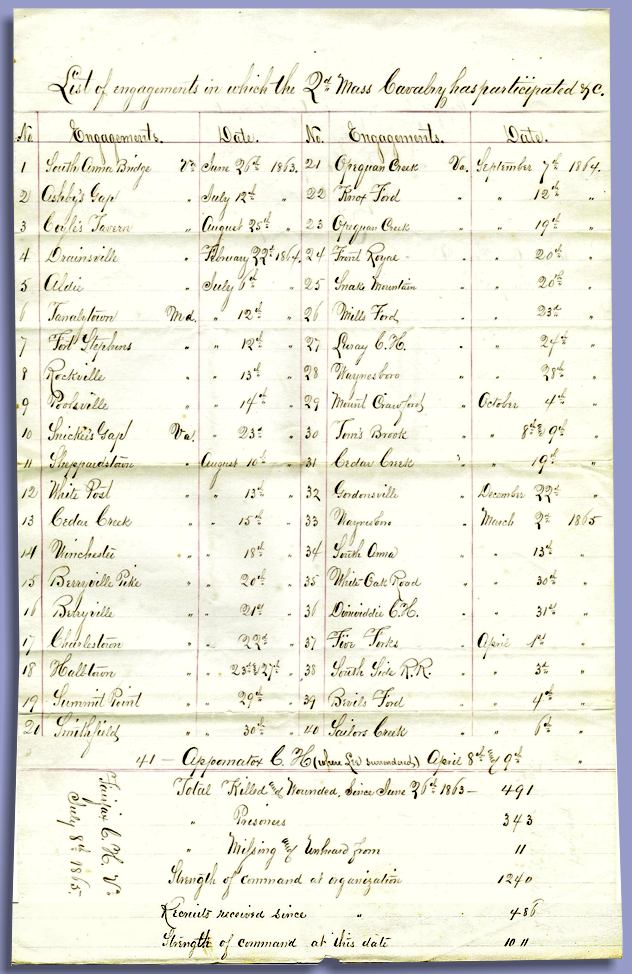 List of engagements in which the 2d Mass Cavalry has participated &c.
No. Engagements. Date. No. Engagements. Date.
1 South Anna Bridge Va June 26th 1863. 21 Opequan Creek Va. September 7th 1864.
2 Ashby's Gap " July 12th " 22 Knox Ford " " 12th "
3 Coyle's Tavern " August 25th " 23 Opequan Creek " " 19th "
4 Drainsville " February 22d 1864. 24 Front Royal " " 20th "
5 Aldie " July 6th " 25 Snake Mountain " " 20th "
6 Tanalytown Md. " 12th " 26 Mills Ford " " 23d "
7 Fort Stephens " " 12th " 27 Luray C.H. " " 24th "
8 Rockville " " 13th " 28 Waynesboro " " 28th "
9 Poolsville " " 14th " 29 Mount Crawford " October 4th "
10 Snicker's Gap Va. " 23d " 30 Tom's Brook " " 8th & 9th "
11 Sheppardstown " August 10th " 31 Cedar Creek " " 19th "
12 White Post " " 13th " 32 Gordonsville " December 22d "
13 Cedar Creek " " 15th " 33 Waynesboro " March 2d 1865
14 Winchester " " 18th " 34 South Anna " " 13th "
15 Berryville Pike " " 20th " 35 White Oak Road " " 30th "
16 Berryville " " 21st " 36 Dinwiddie C.H. " " 31st "
17 Charlestown " " 22d " 37 Five Forks " April 1st "
18 Halltown " " 25th & 27th " 38 South Side R.R. " " 3d "
19 Summit Point " " 29th " 39 Bevils Ford " " 4th "
20 Smithfield " " 30th " 40 Sailors Creek " " 6th "
41 — Appomatox C. H (where Lee surrendered) April 8th & 9th "
Total Killed and Wounded, since June 26th 1863 — 491
" Prisoners 343
" Missing and Unheard from 11
Strength of command at organization 1240
Recruits received since " 486
Strength of command at this date 1011
Fairfax C. H. Va
July 8th 1865.